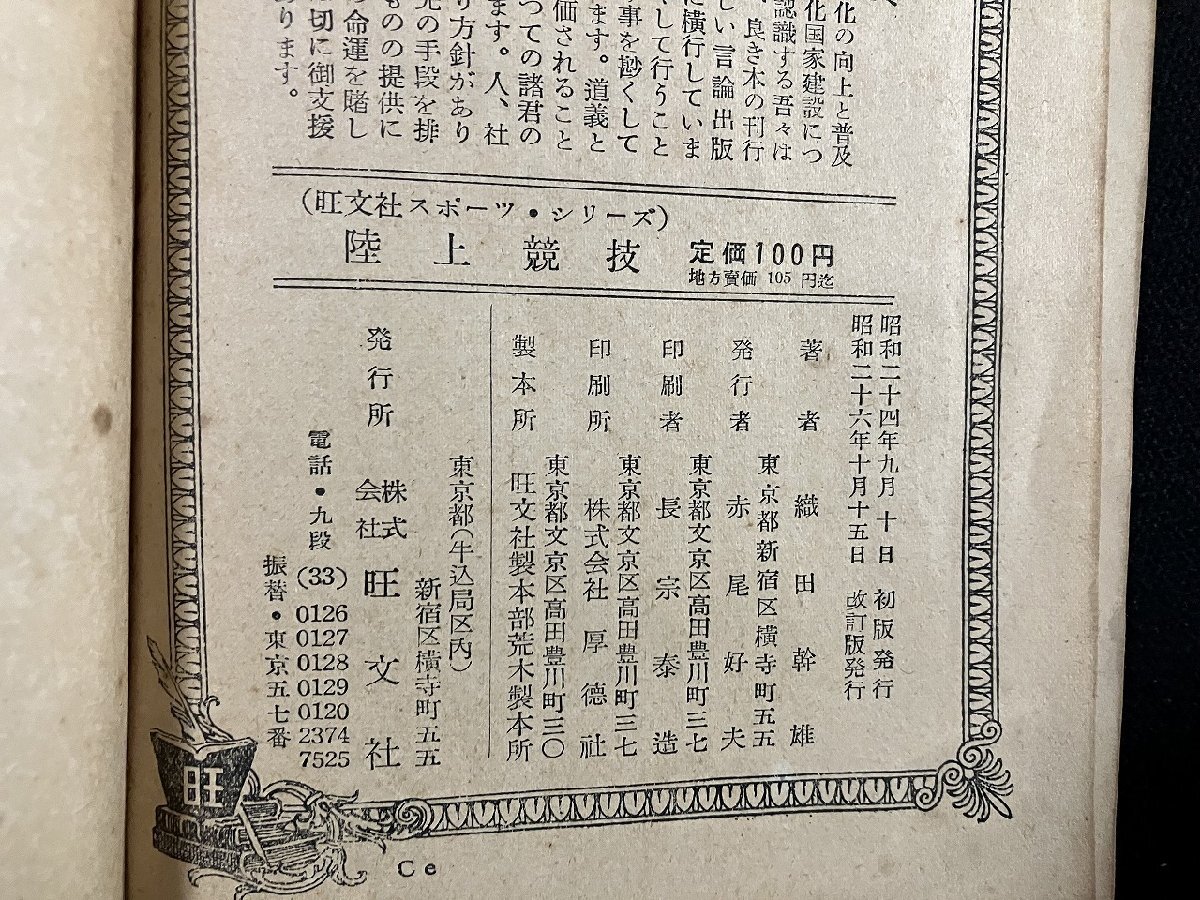 化の向上と普及
化国家建設につ
認識する吾々は
、良き本の刊行
しい言論出版
に横行していま
くして行うこと
事を尠くして
ます。道義と
価されること
つての諸君の
ます。人、社
り方針があり
の手段を排
ものの提供に
命運を賭し
切に御支援
あります。
(旺文社スポーツ・シリーズ)
陸上競技 定価100円
地方賣価 105 円迄
昭和二十四年九月十日 初版発行
昭和二十六年十月十五日 改訂版発行
著者 織田幹雄
東京都新宿区横寺町五五
発行者 赤尾好夫
東京都文京区高田豊川町三七
印刷者 長宗泰造
東京都文京区高田豊川町三七
印刷所 株式会社 厚徳社
東京都文京区高田豊川町三〇
製本所 旺文社製本部荒木製本所
東京都(牛込局区内)
新宿区横寺町五五
発行所 株式会社 旺文社
電話・九段(33)
0126
0127
0128
0129
0120
2374
7525
振替・東京五七番
旺
Ce